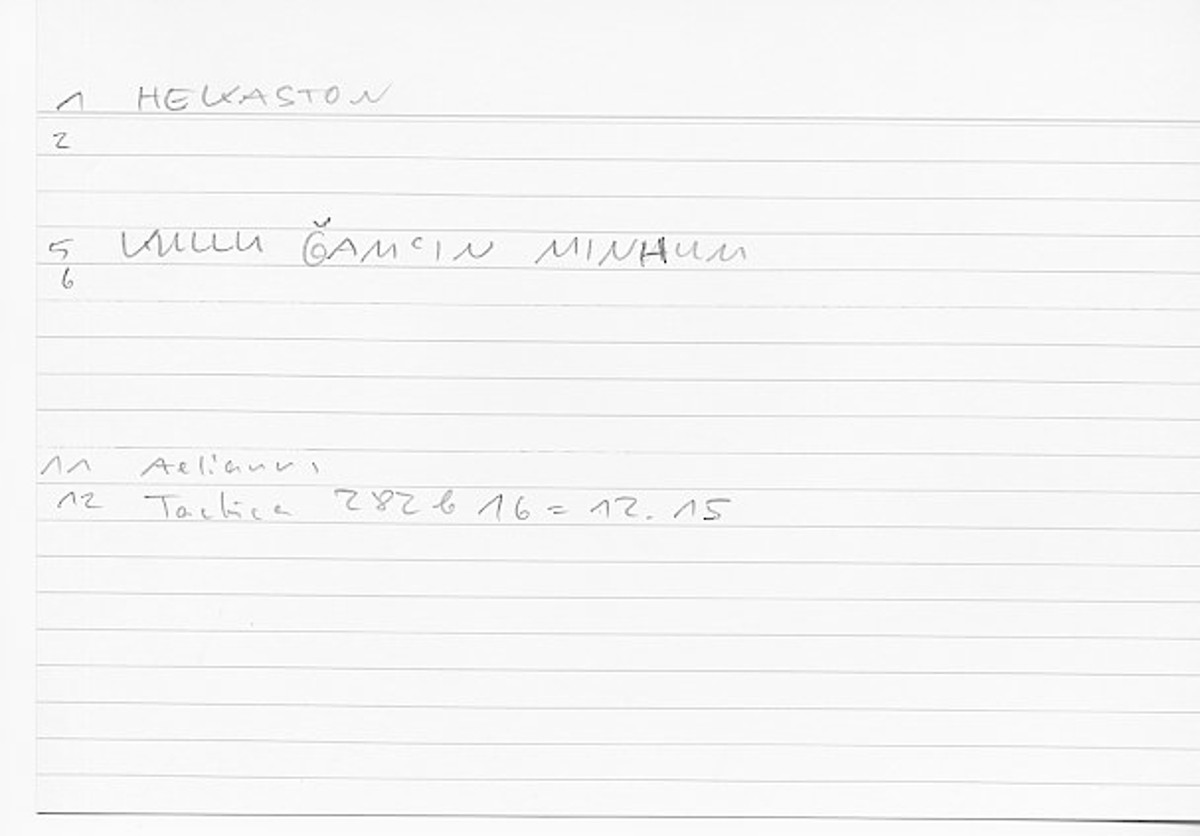 1 HEKASTON
2
5 KULLU ǦAMʿIN MINHUM
6
11 Aelianus
12 Tactica 282b 16 = 12. 15